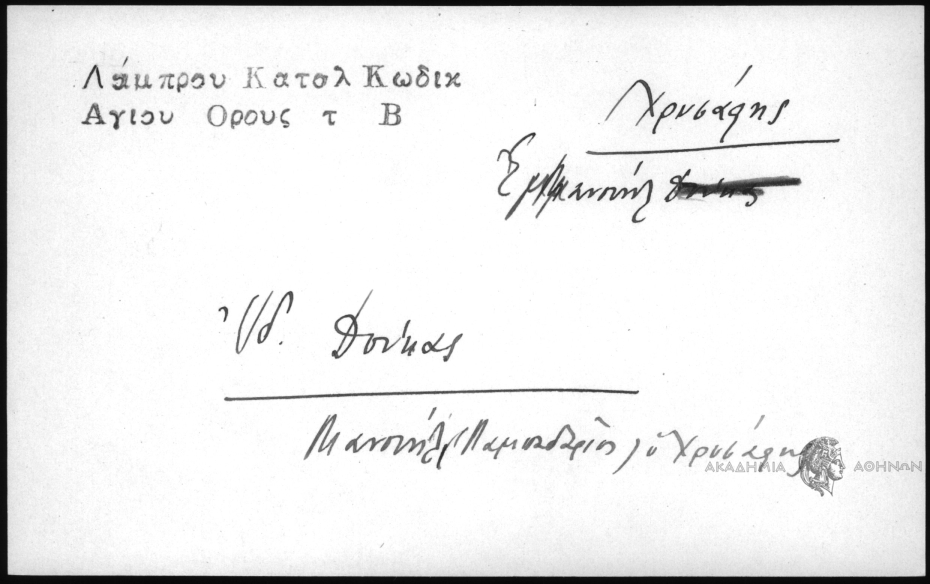 Λάμπρου Καταλ Κωδικ
Αγίου Ορους τ Β
Χρυσάφης
Ἐμμανουήλ Δούκας
Ἰδ. Δούκας
Μανουήλ (Λαμπαδάριος) ὁ Χρυσάφης
ΑΚΑΔΗΜΙΑ ΑΘΗΝΩΝ